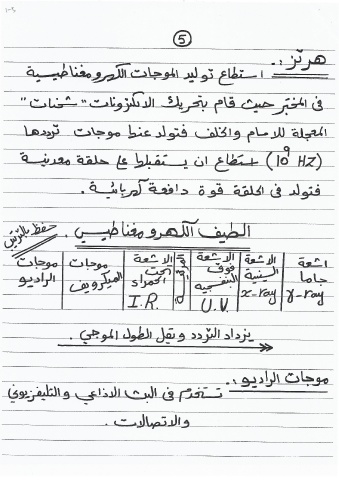 5
هرتز :.
استطاع توليد الموجات الكهرومغناطيسية
فى المختبر حيث قام بتحريك الالكترونات "شحنات"
المعجلة للامام والخلف فتولد عنط موجات ترددها
(10⁹ HZ) استطاع ان يستقبلها على حلقة معدنية
فتولد فى الحلقة قوة دافعة كهربائية.
الطيف الكهرومغناطيسي. حفظ بالترتيب
اشعة جاما γ-ray
الاشعة السينية x-ray
الاشعة فوق البنفسجيه U.V
الاشعة تحت الحمراء I.R.
موجات الميكرويف
موجات الراديو
يزداد التردد ويقل الطول الموجي.
موجات الراديو :.
تستخدم فى البث الاذاعي والتليفزيوني
والاتصالات.